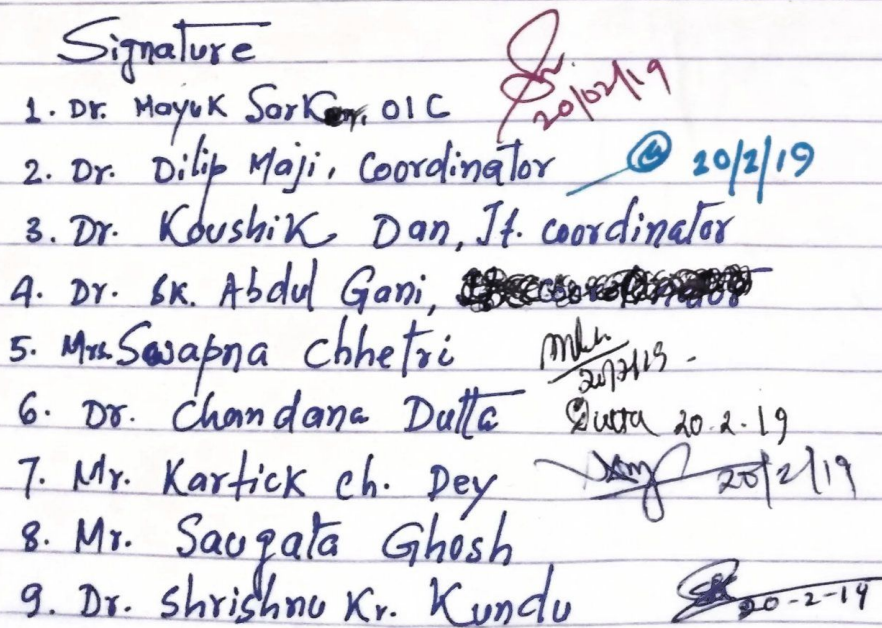 Signature
1. Dr. Mayuk Sarkar, OIC 20/02/19
2. Dr. Dilip Maji, Coordinator 20/2/19
3. Dr. Koushik Dan, Jt. coordinator
4. Dr. SK. Abdul Gani,
5. Mrs. Swapna Chhetri 20/2/19
6. Dr. Chandana Dutta Dutta 20.2.19
7. Mr. Kartick ch. Dey 20/2/19
8. Mr. Saugata Ghosh
9. Dr. Shrishnu Kr. Kundu 20-2-19